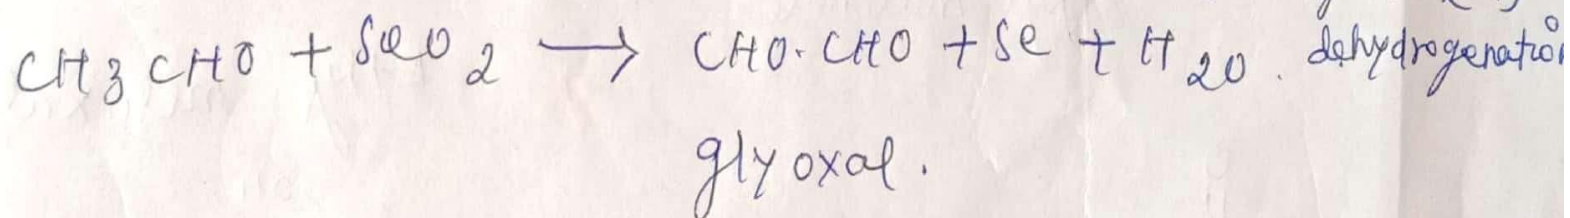 CH3CHO + SeO2 → CHO·CHO + Se + H2O. dehydrogenation
glyoxal.